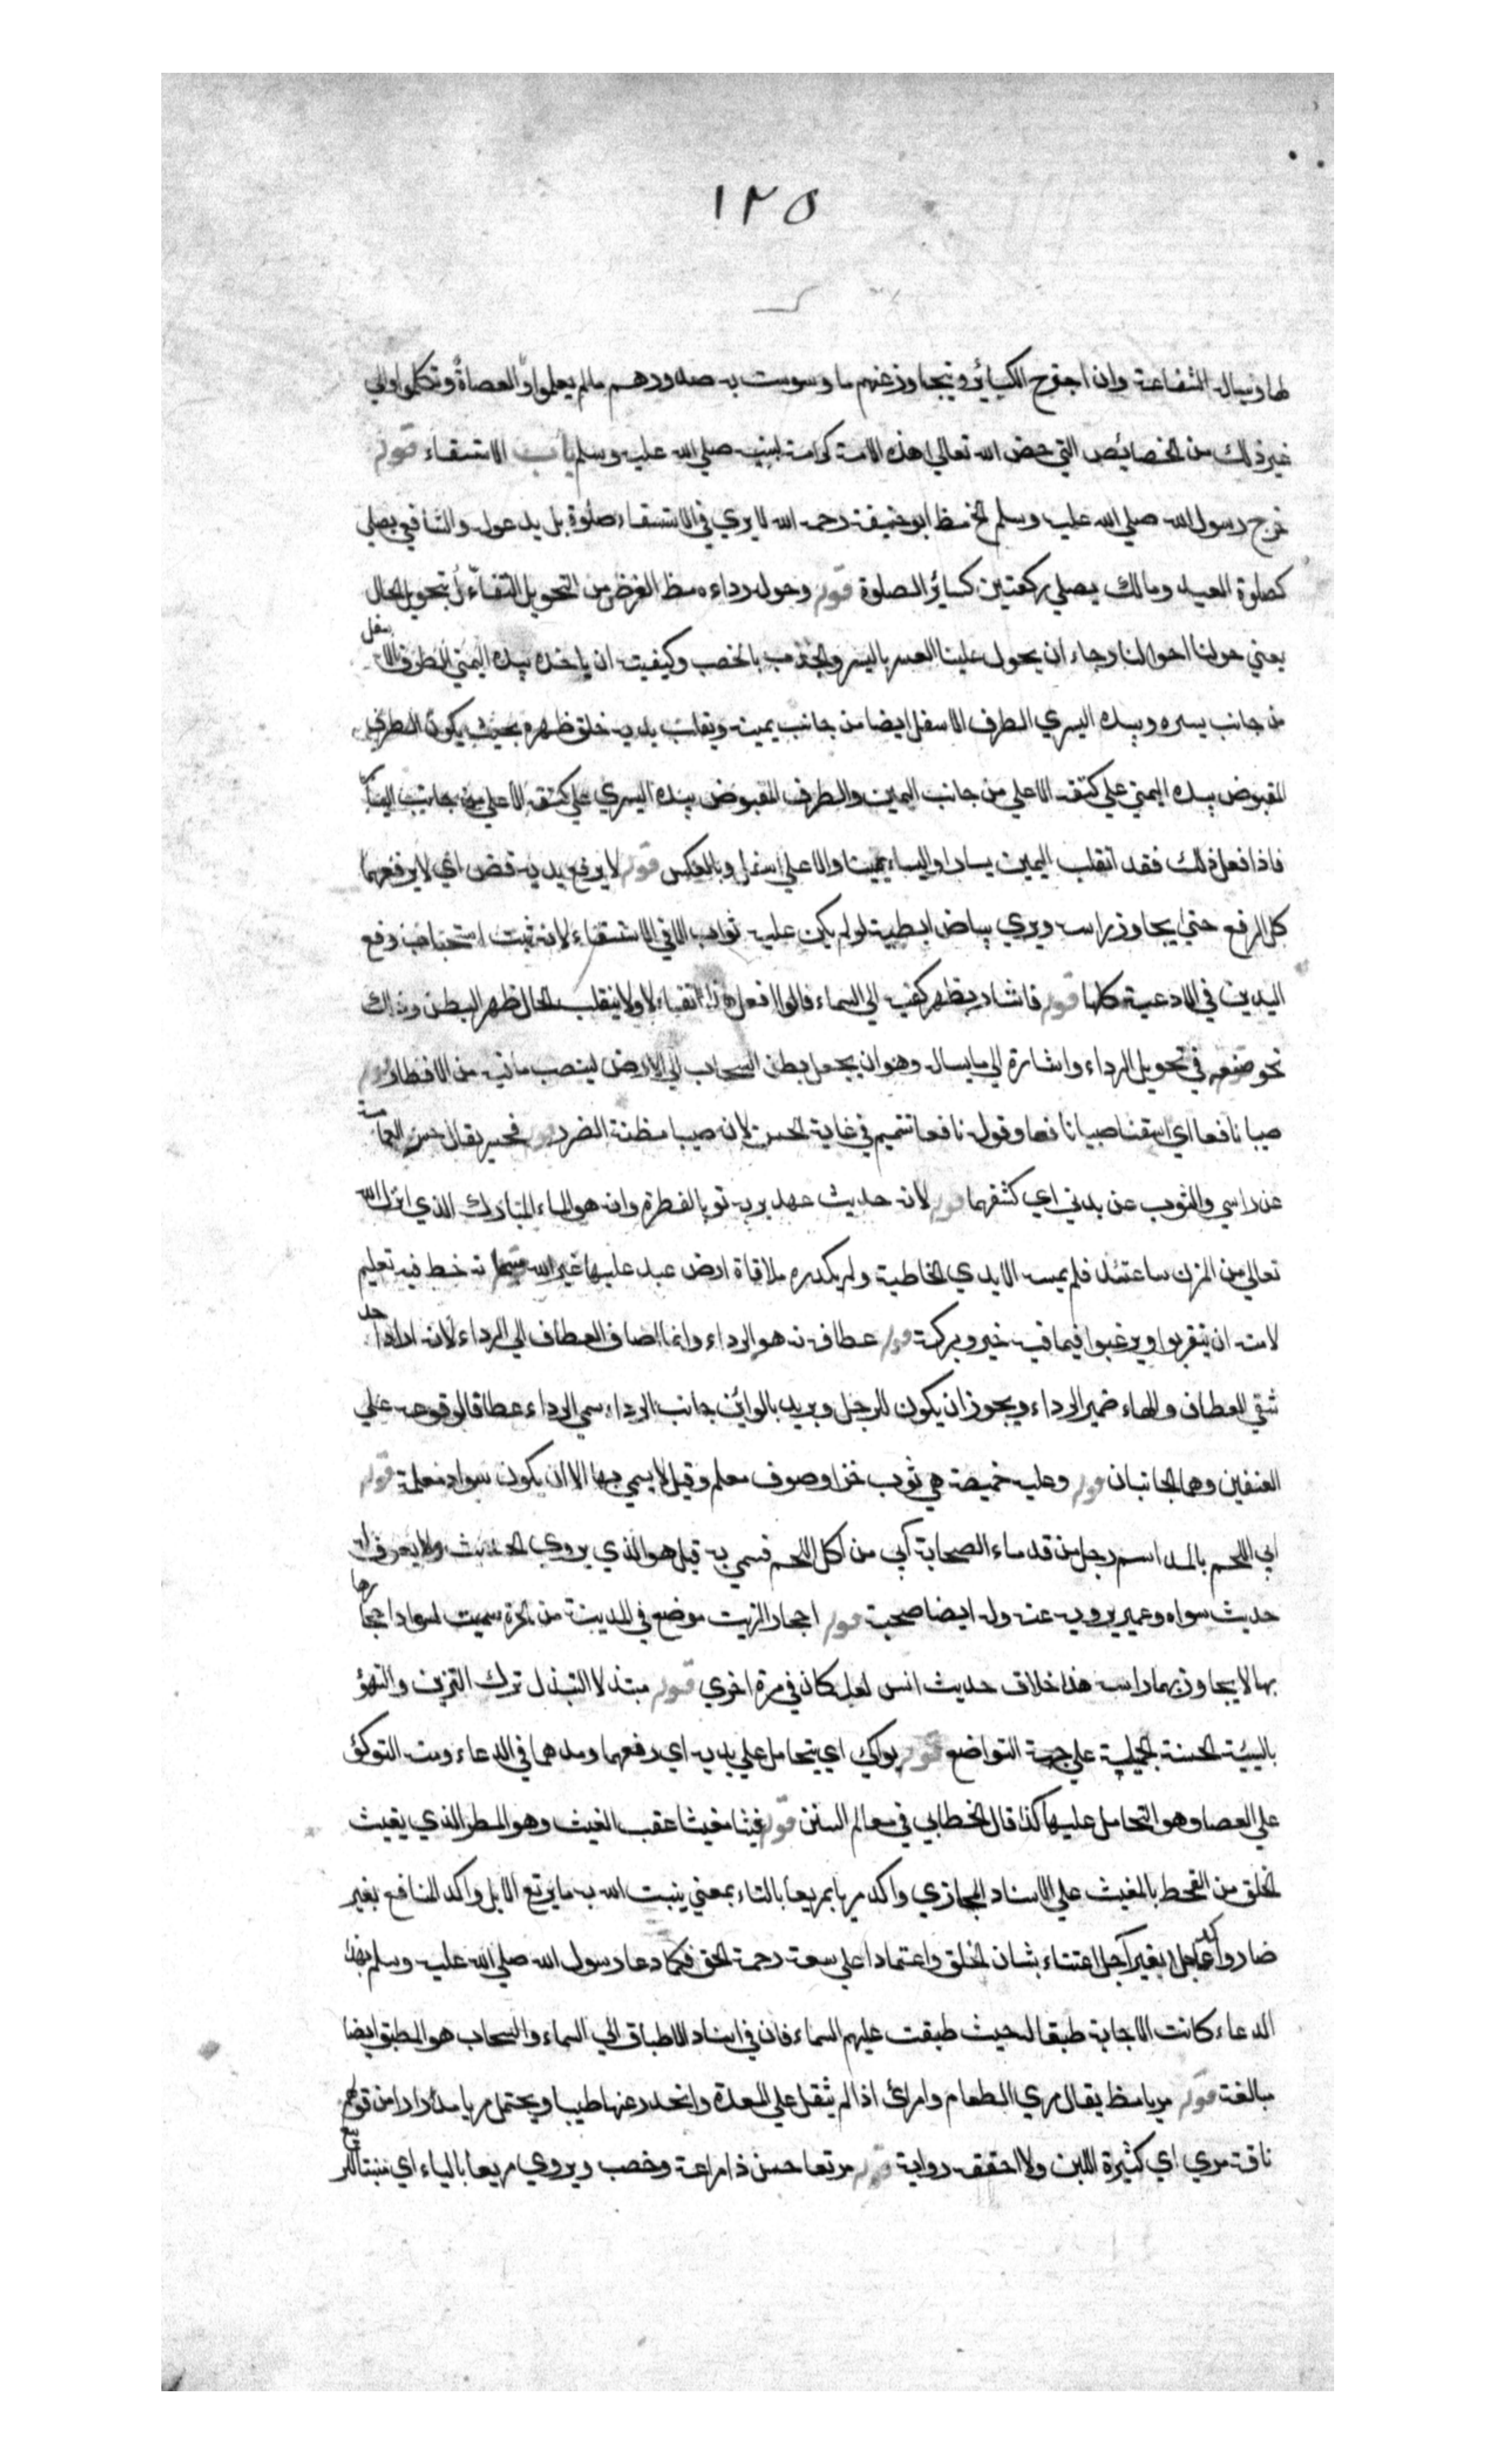 ١٢٥
لها وينال الشفاعة وان اجترح الكبائر ويتجاوز عنهم ما وسوست به صدورهم مالم يعملوا او العصاة وتكلموا والي
غير ذلك من الخصائص التي خص الله تعالي هذه الامة كرامة لنبيه صلي الله عليه وسلم باب الاستسقاء قوله
خرج رسول الله صلي الله عليه وسلم الخ مظ ابو حنيفة رحمه الله لا يري في الاستسقاء صلوة بل يدعو له والشافعي يصلي
كصلوة العيد ومالك يصلي ركعتين كسائر الصلوة قوله وحول رداءه مظ الغرض من التحويل التفاءل بتحويل الحال
يعني حولنا احوالنا رجاء ان يحول علينا العسر باليسر والجدب بالخصب وكيفيته ان ياخذ بيده اليمني الطرف الاسفل
من جانب يسره وبيده اليسري الطرف الاسفل ايضا من جانب يمينه ويقلب يديه خلف ظهره بحيث يكون الطرف
المقبوض بيده اليمني علي كتفه الاعلي من جانب اليمين والطرف المقبوض بيده اليسري علي كتفه الاعلي من جانب اليسار
فاذا فعل ذلك فقد انقلب اليمين يسارا واليسار يمينا والاعلي اسفل وبالعكس قوله لا يرفع يديه قض اي لا يرفعهما
كل الرفع حتي يجاوز راسه ويري بياض ابطيه لو لم يكن عليه ثوب الا في الاستسقاء لانه ثبت استحباب رفع
اليدين في الادعية كلها قوله فاشار بظهر كفيه الي السماء قالوا فعل هذا تفاءلا ولا ينقلب الحال ظهر البطن وذلك
نحو صنعه في تحويل الرداء واشارة الي ما يساله وهو ان يجعل بطن السحاب الي الارض لينصب ما فيه من الاقطار قوله
صيبا نافعا اي اسقنا صيبا نافعا وقوله نافعا تتميم في غاية الحسن لان صيبا مظنة الضرر قوله فحسر يقال حسر العمامة
عن راسي والثوب عن بدني اي كشفهما قوله لانه حديث عهد بربه تو بالفطرة وانه هو الماء المبارك الذي انزله الله
تعالي من المزن ساعتئذ فلم يمسه الايدي الخاطية ولم يكدره ملاقاة ارض عبد عليها غير الله خط فيه تعليم
لامته ان يتقربوا ويرغبوا فيما فيه خير وبركة قوله عطافه نه هو الرداء وانما اضاف العطاف الي الرداء لانه اراد احد
شقي العطاف والهاء ضمير الرداء ويجوز ان يكون للرجل ويريد بالرداء جانب الرداء سمي الرداء عطافا لوقوعه علي
العطفين وهما الجانبان قوله وعليه خميصة هي ثوب خز او صوف معلم وقيل لا يسمي بها الا ان يكون سواد معلمة قوله
ابي اللحم بالمد اسم رجل من قدماء الصحابة ابي من اكل اللحم فسمي به قيل هو الذي يروي الحديث ولا يعرف له
حديث سواه وعمير يرويه عنه وله ايضا صحبة قوله احجار الزيت موضع في المدينة من الحرة سميت لسواد احجارها
بها لا يجاوز بهما راسه هذا خلاف حديث انس لعله كان في مرة اخري قوله مبتذلا التبذل ترك التزين والتهيؤ
بالهيئة الحسنة الجميلة علي جهة التواضع قوله يواكي اي يتحامل علي يديه اي رفعهما ومدهما في الدعاء ومنه التوكؤ
علي العصا وهو التحامل عليها كذا قال الخطابي في معالم السنن قوله غيثا مغيثا عقب الغيث وهو المطر الذي يغيث
الخلق من القحط بالمغيث علي الاسناد المجازي واكد مريا بمريعا بالتاء بمعني ينبت الله به ما يرتع الابل واكد النافع بغير
ضار واكد عاجل بغير آجل اعتناء بشان الخلق واعتمادا علي سعة رحمة الحق فكما دعا رسول الله صلي الله عليه وسلم بهذا
الدعاء كانت الاجابة طبقا له حيث طبقت عليهم السماء فان في اسناد الاطباق الي السماء والسحاب هو المطبق ايضا
مبالغة قوله مريا مظ يقال مري الطعام وامرئ اذا لم يثقل علي المعدة وانحدر عنها طيبا ويحتمل مريا مدرارا من قولهم
ناقة مري اي كثيرة اللبن ولا احققه رواية قوله مرتعا حسن ذا مراعة وخصب ويروي مربعا بالباء اي منبتا للربيع